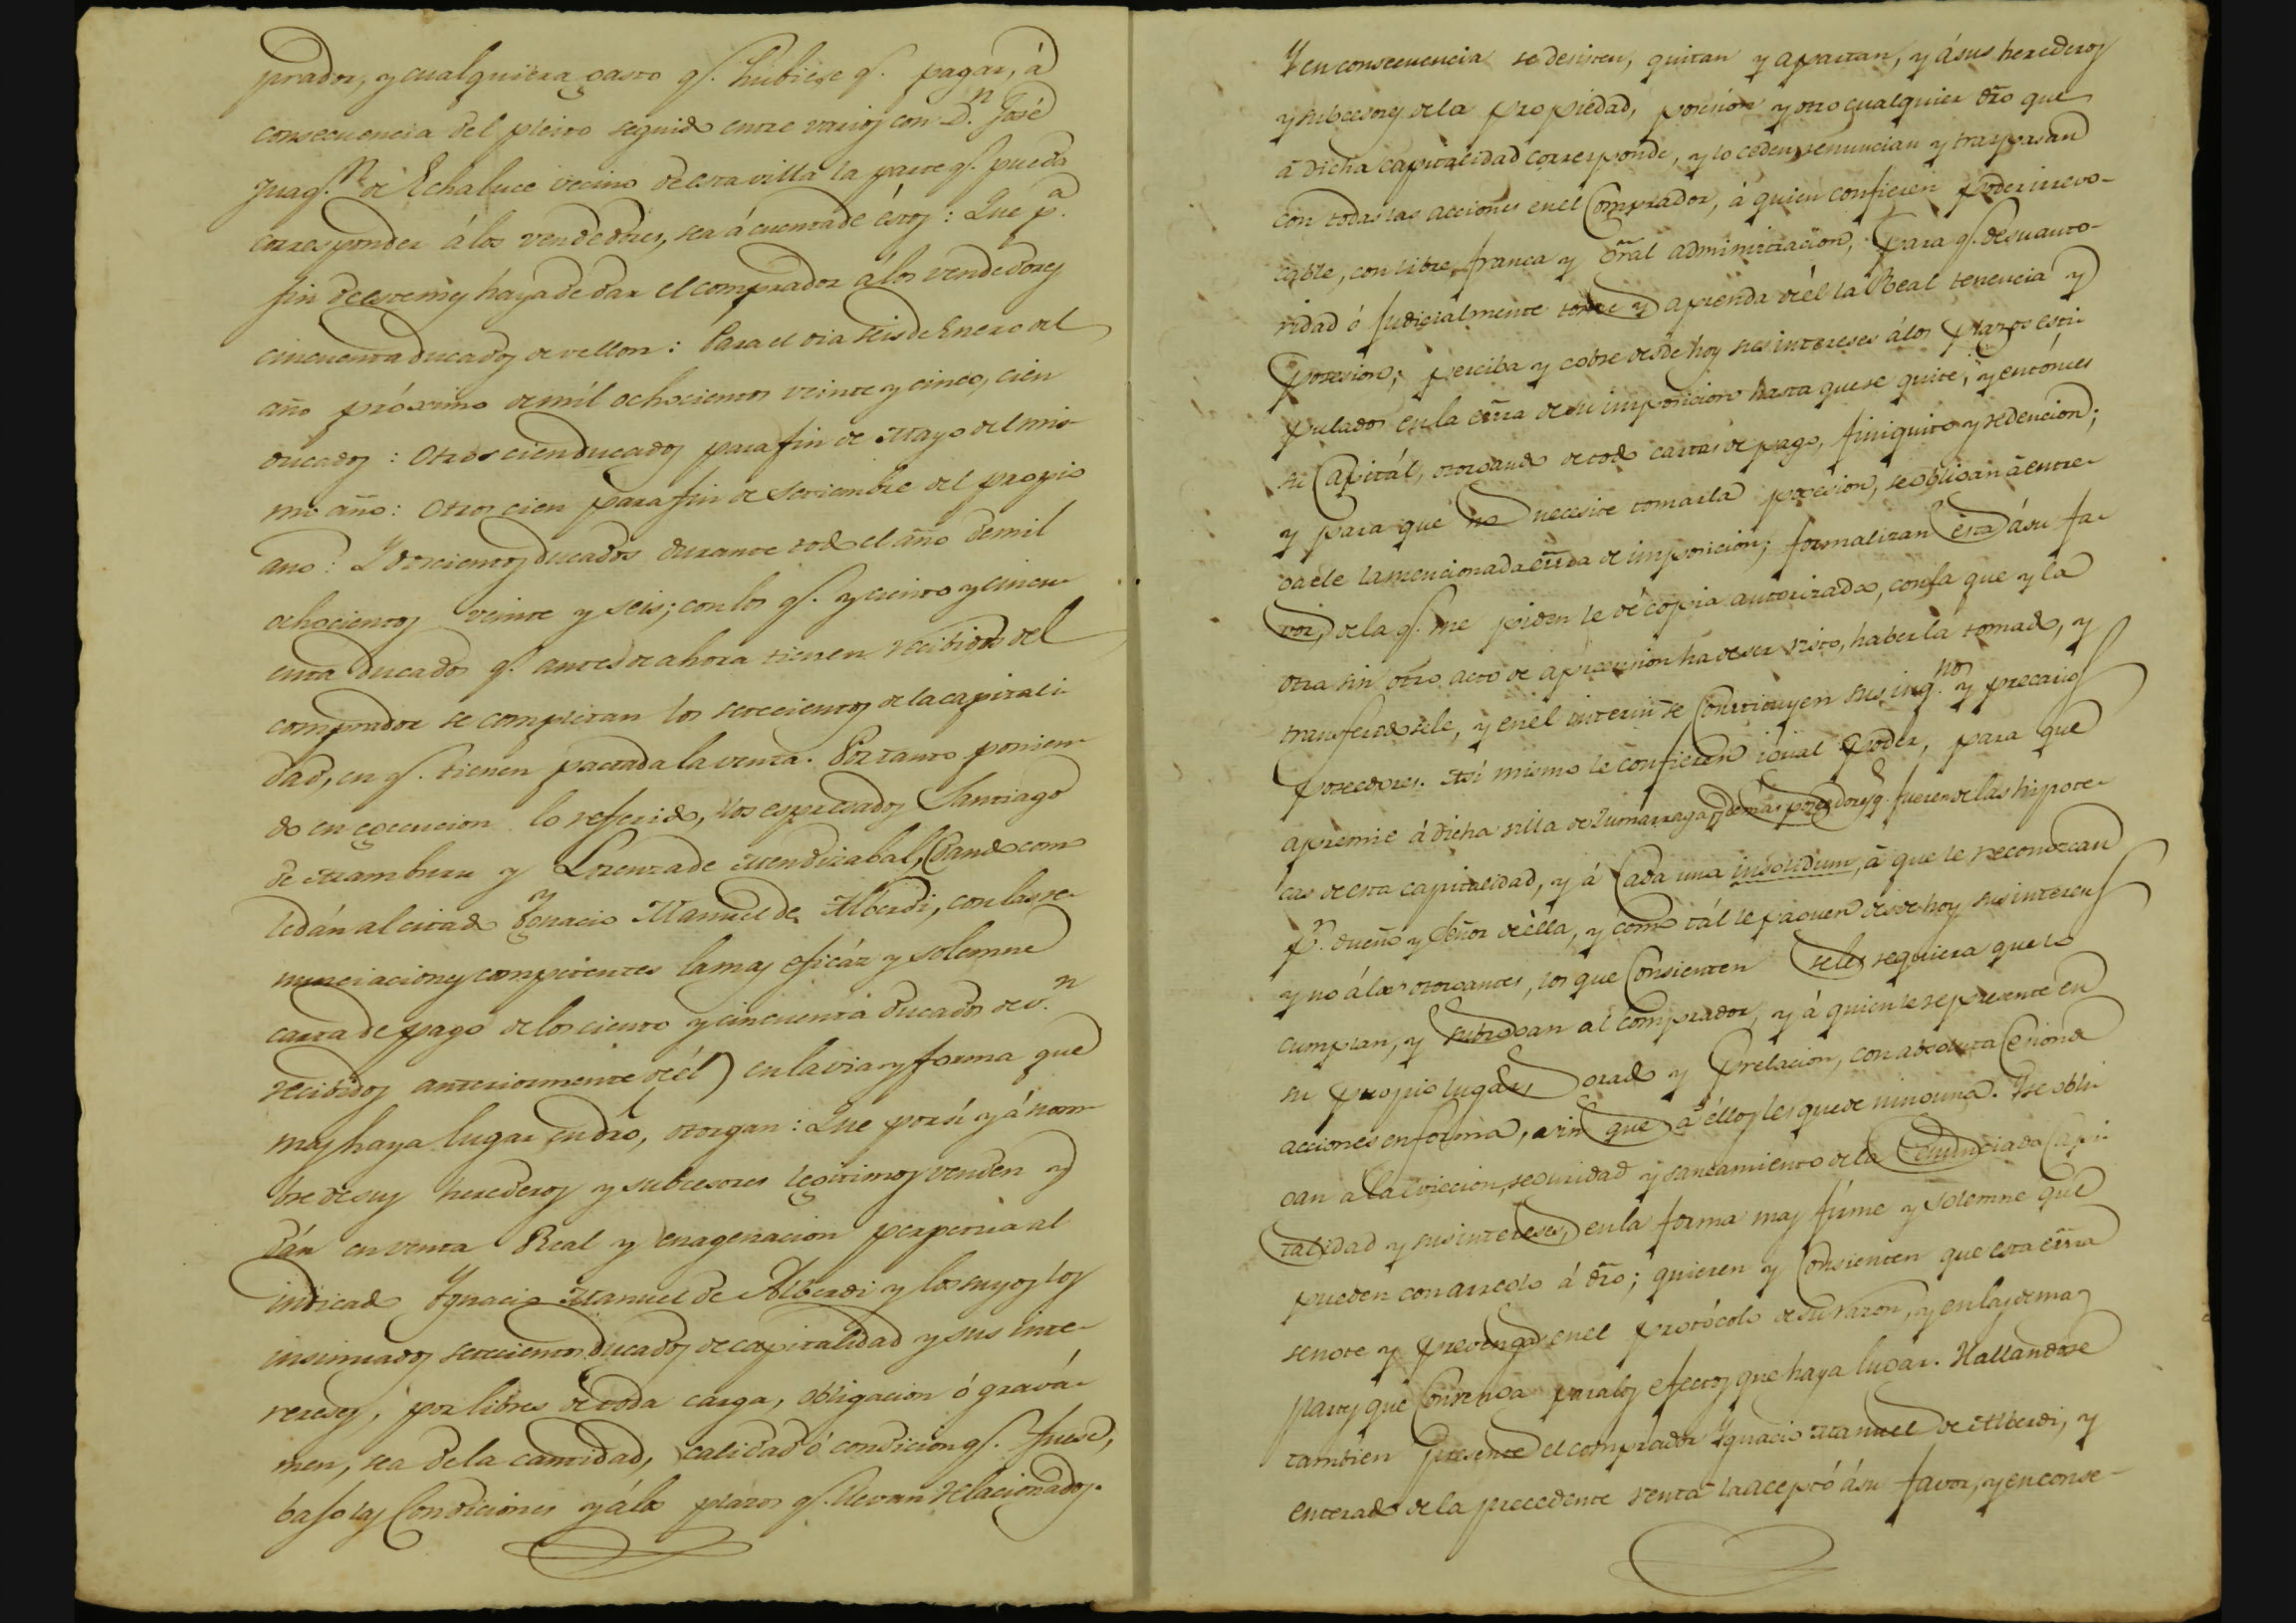 prador, y cualquiera gasto q.e hubiese q.e pagar, á
consecuencia del pleito seguido entre varios con D.n José
Juaq.n de Echaluce vecino de esta villa la parte q.e pueda
corresponder á los vendedores, sea á cuenta de éstos: Que p.a
fin de este mes haya de dar el comprador á los vendedores
cincuenta ducados de vellon: Para el dia seis de Enero del
año próximo de mil ochocientos veinte y cinco, cien
ducados: Otros cien ducados para fin de Mayo del mis-
mo año: Otros cien para fin de Setiembre del propio
año: Y doscientos ducados durante todo el año de mil
ochocientos veinte y seis; con los q.e y ciento y cincu-
enta ducados q.e antes de ahora tienen recibidos del
comprador se completan los setecientos de la capitali-
dad, en q.e tienen pactada la venta. Por tanto ponien-
do en egecucion lo referido, los expresados Santiago
de Aramburu y Lorenza de Mendizabal, (dando como
le dán al citado Ygnacio Manuel de Alberdi, con las re-
nunciaciones competentes la mas eficáz y solemne
carta de pago de los ciento y cincuenta ducados de v.n
recibidos anteriormente de él) en la via y forma que
mas haya lugar en dro, otorgan: Que por sí y á nom-
bre de sus herederos y subcesores legitimos venden y
dán en venta Real y enagenacion perpetua al
indicado Ygnacio Manuel de Alberdi y los suyos los
insinuados setecientos ducados de capitalidad y sus inte-
reses, por libres de toda carga, obligacion ó gravá-
men, sea de la cantidad, calidad ó condicion q.e fuese,
bajo las Condiciones y á los plazos q.e llevan relacionados.
Y en consecuencia se desisten, quitan y apartan, y á sus herederos
y subcesores de la propiedad, posesion y otro cualquier dro que
á dicha capitalidad corresponde, y lo ceden, renuncian y traspasan
con todas las acciones en el Comprador, á quien confieren poder irrevo-
cable, con libre, franca y gral administracion, para q.e de su auto-
ridad ó judicialmente tome y aprenda de él la Real tenencia y
posesion; perciba y cobre desde hoy sus intereses á los plazos esti-
pulados en la esrra de su imposicion hasta que se quite, y entónces
su Capitál, otorgando de todo cartas de pago, finiquito y redencion;
y para que no necesite tomarla posesion, se obligan á entre-
garle la mencionada esrra de imposicion; formalizan esta á su fa-
vor, de la q.e me piden le dé copia autorizada, con la que y la
otra sin otro acto de aprension ha de ser visto, haberla tomado, y
transferidosele, y en el interin se Constituyen sus inq.nos y precarios
poseedores. Así mismo le confieren igual poder, para que
apremie á dicha villa de Zumarraga y demas poseedores q.e fueren de las hipote-
cas de esta capitalidad, y á Cada una insolidum, á que le reconozcan
p.r dueño y Señor de ella, y como tál le paguen desde hoy sus intereses
y no á los otorgantes, los que Consienten se les requiera que lo
cumplan, y subrogan al comprador, y á quien le represente en
su propio lugar, grado y prelacion, con absoluta Cesion de
acciones en forma, sin que á ellos les quede ninguna. Y se obli-
gan a la eviccion, seguridad y saneamiento de la enunciada Capi-
talidad y sus intereses, en la forma mas firme y solemne que
pueden con arreglo á dro; quieren y Consienten que esta esrra
se note y prevenga en el protócolo de su razon, y en las demas
partes que Convenga para los efectos que haya lugar. Hallandose
tambien presente el comprador Ygnacio Manuel de Alberdi, y
enterado de la precedente venta la aceptó á su favor, y en conse-